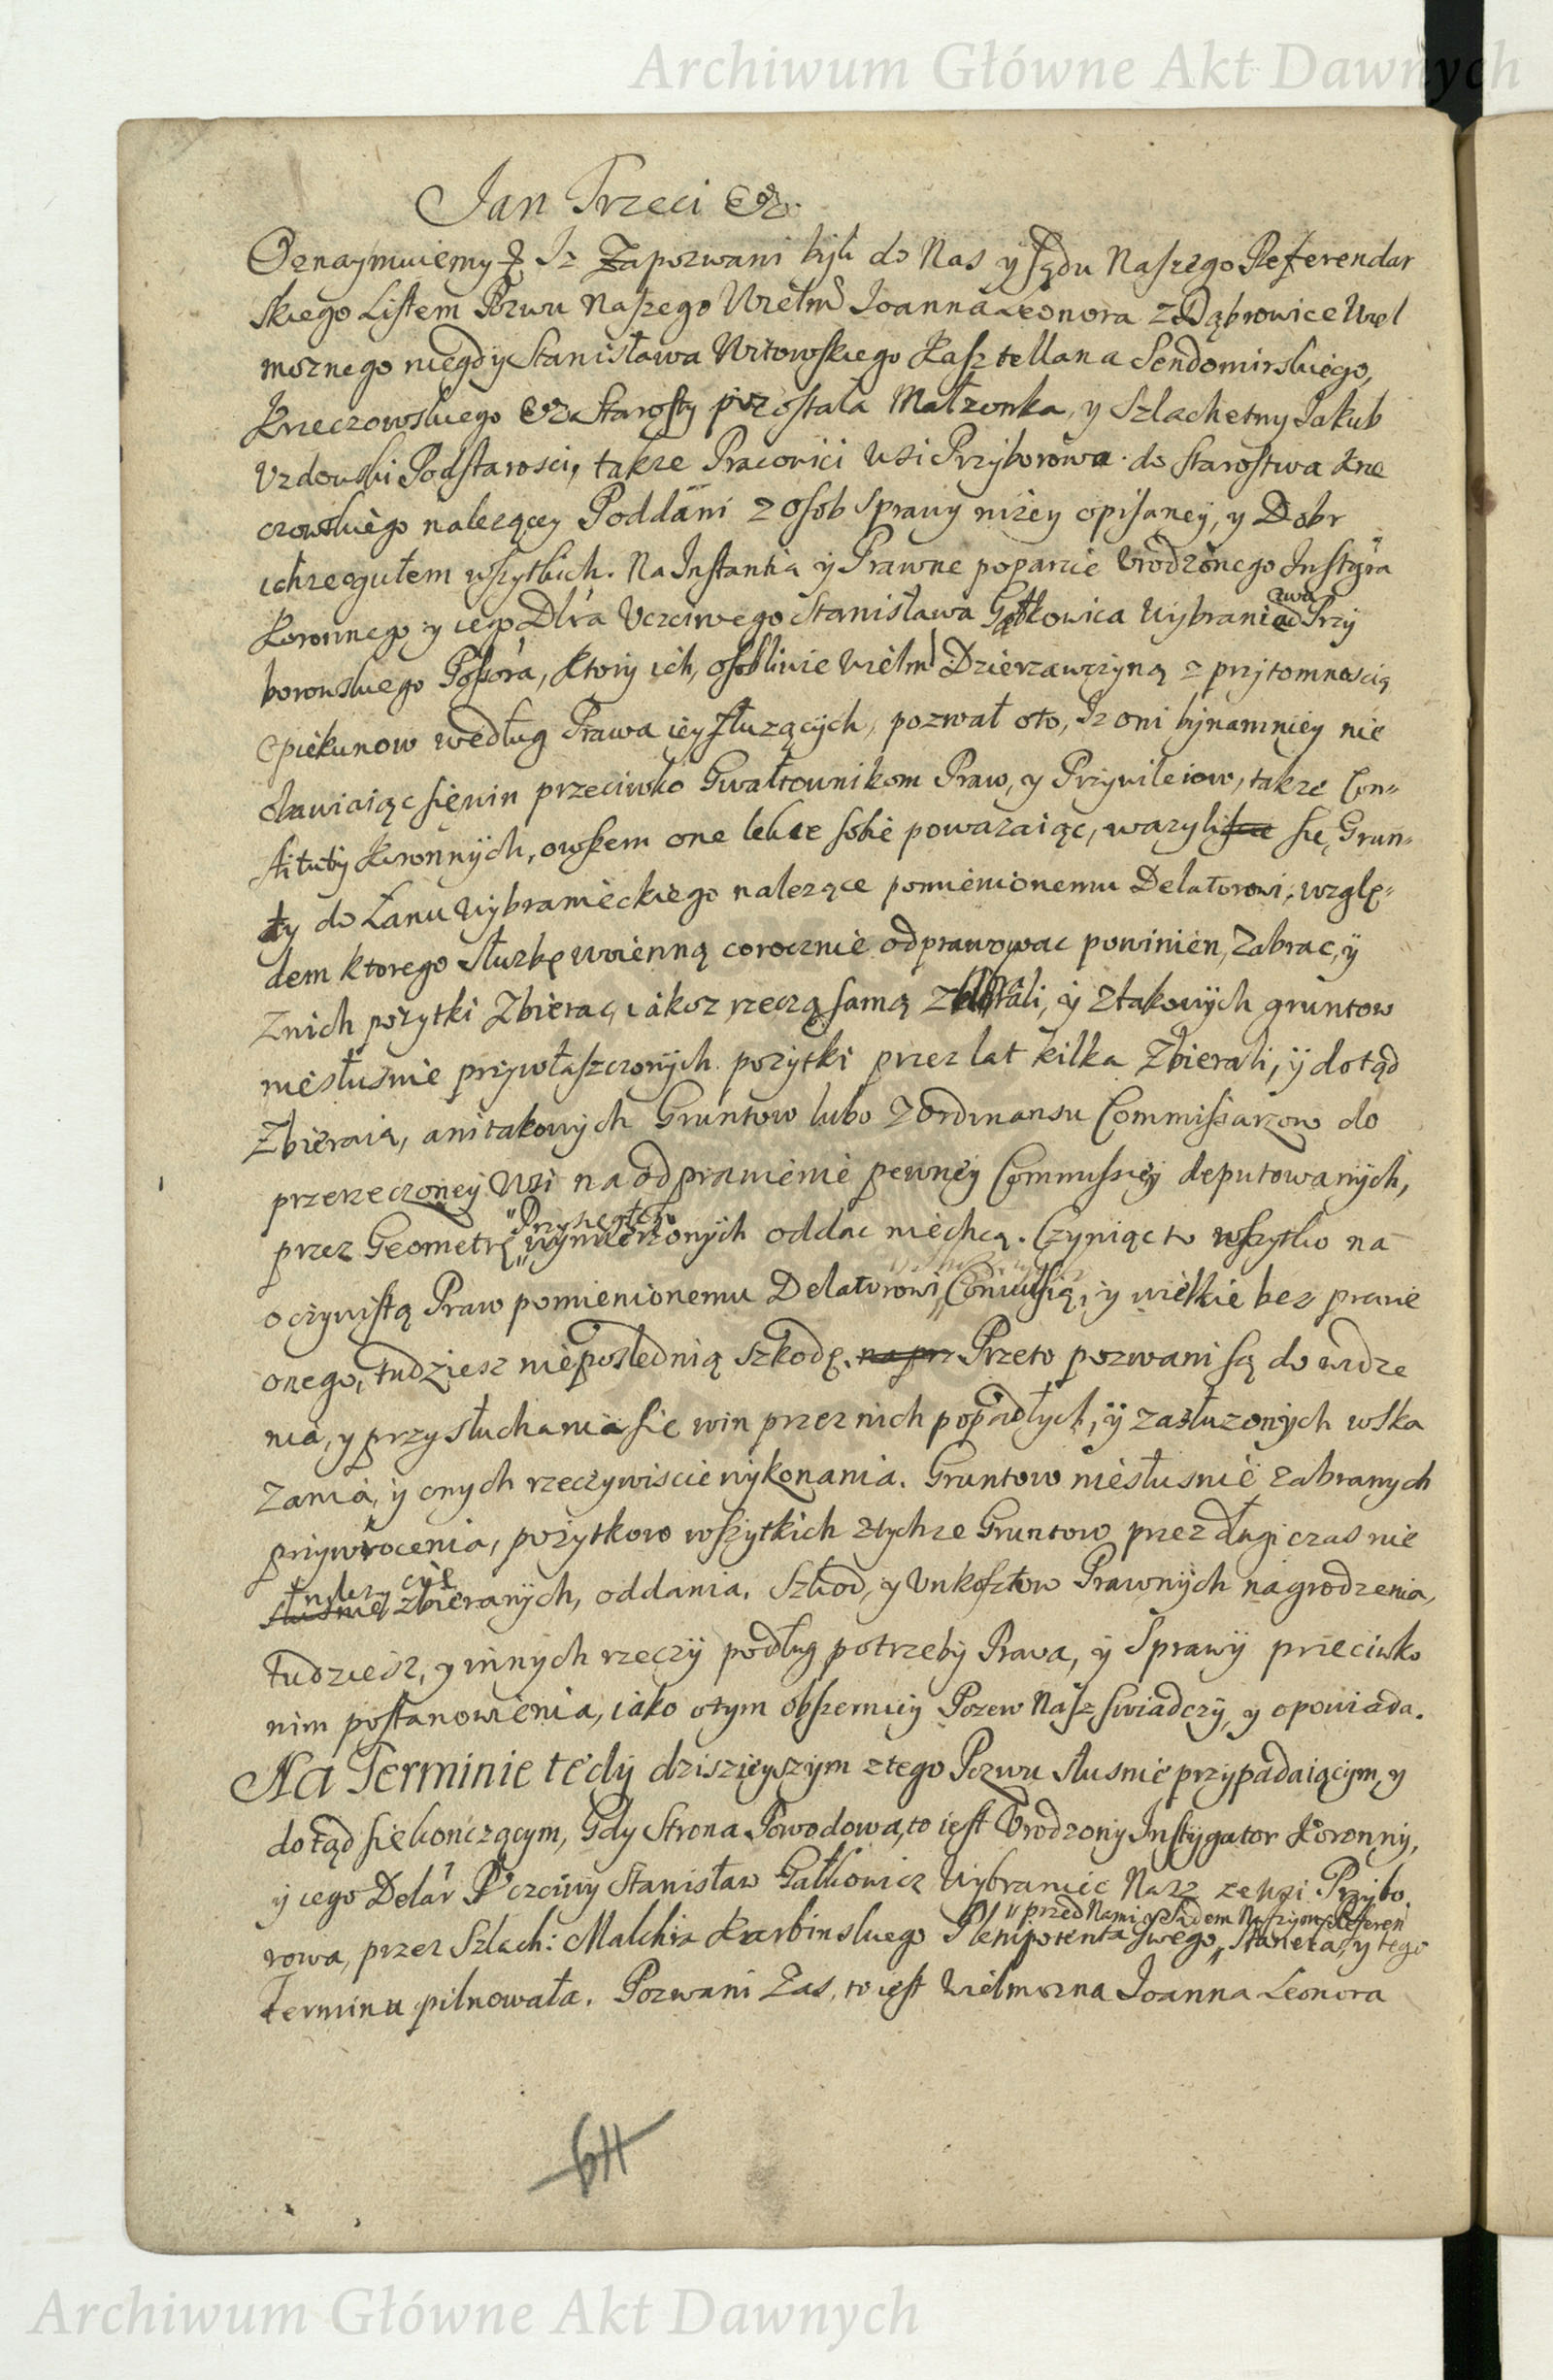 Archiwum Główne Akt Dawnych
Jan Trzeci &c.
Oznaymuiemy Iz Zapozwani byli do Nas y Sądu Naszego Referendar
skiego Listem Pozwu Naszego Wielm Joanna Leonora z Dąbrowice Wiel
moznego niegdy Stanisława Witowskiego Kasztellana Sendomirskiego,
Krzeczowskiego &c. Starosty pozostała Małzonka, y Szlachetny Jakub
Uzdowski Podstarosci, takze Pracowici Wsi Przyborowa do Starostwa Krze
czowskiego nalezącey Poddani z osob sprawy nizey opisaney, y Dobr
ich zegułem wszytkich. Na Instantią y Prawne poparcie Urodzonego Instigra
Koronnego y iego Dlra Uczciwego Stanisława Gałkowica Wybrańca Przy
borowskiego Possora, ktory ich, osobliwie Wielm Dzierzawczyną z przytomnoscią
Opiekunow według Prawa iey słuzących, pozwał oto, Iz oni bynamniey nie
obawiaiąc się win przeciwko Gwałtownikom Praw, y Przywileiow, takze Con-
stituty Koronnych, owszem one lekce sobie powazaiąc, wazyli się, Grun-
ty do Łanu Wybranieckiego nalezące pomienionemu Delatorowi, wzglę-
dem ktorego słuzbę woienną corocznie odprawowac powinien, Zabrac, y
Z nich pozytki Zbierac, iakoz rzeczą samą Zabrali, y z takowych gruntow
niesłusnie przywłaszczonych pozytki przez lat kilka Zbierali, y dotąd
Zbieraią, ani takowych Gruntow lubo z Ordinansu Commissarzow do
przerzeczoney Wsi na odprawienie pewney Commissiey deputowanych,
przez Geometrę Przysięgłego wymierzonych oddac niechcą. Czyniąc to wszytko na
oczywistą Praw pomienionemu Delatorowi Convulsią, y wielkie bez prawie
onego, tudziesz nieposlednią szkodę. na prz Przeto pozwani są do widze
nia, y przysłuchania się win przez nich popadłych, y zasłuzonych wska
zania, y onych rzeczywiscie wykonania. Gruntow niesłusnie zabranych
przywrocenia, pozytkow wszytkich z tychze Gruntow przez długi czas nie
słusnie zbieranych, oddania. Szkod, y Unkosztow Prawnych nagrodzenia,
tudziesz, y innych rzeczy podług potrzeby Prawa, y Sprawy przeciwko
nim postanowienia, iako o tym obszerniey Pozew Nasz swiadczy, y opowiada.
Na Terminie tedy dzisieyszym z tego Pozwu słusnie przypadaiącym, y
dotąd się kończącym, Gdy Strona Powodowa, to iest Urodzony Instygator Koronny,
y iego Delar Uczciwy Stanisław Gałkowicz Wybraniec Nasz ze wsi Przybo
rowa, przez Szlach: Malchra Karbinskiego Plenipotenta swego, przed Nami y Sądem Naszym Referen stanęła, y tego
Terminu pilnowała. Pozwani Zas, to iest Wielmozna Joanna Leonora
Archiwum Główne Akt Dawnych